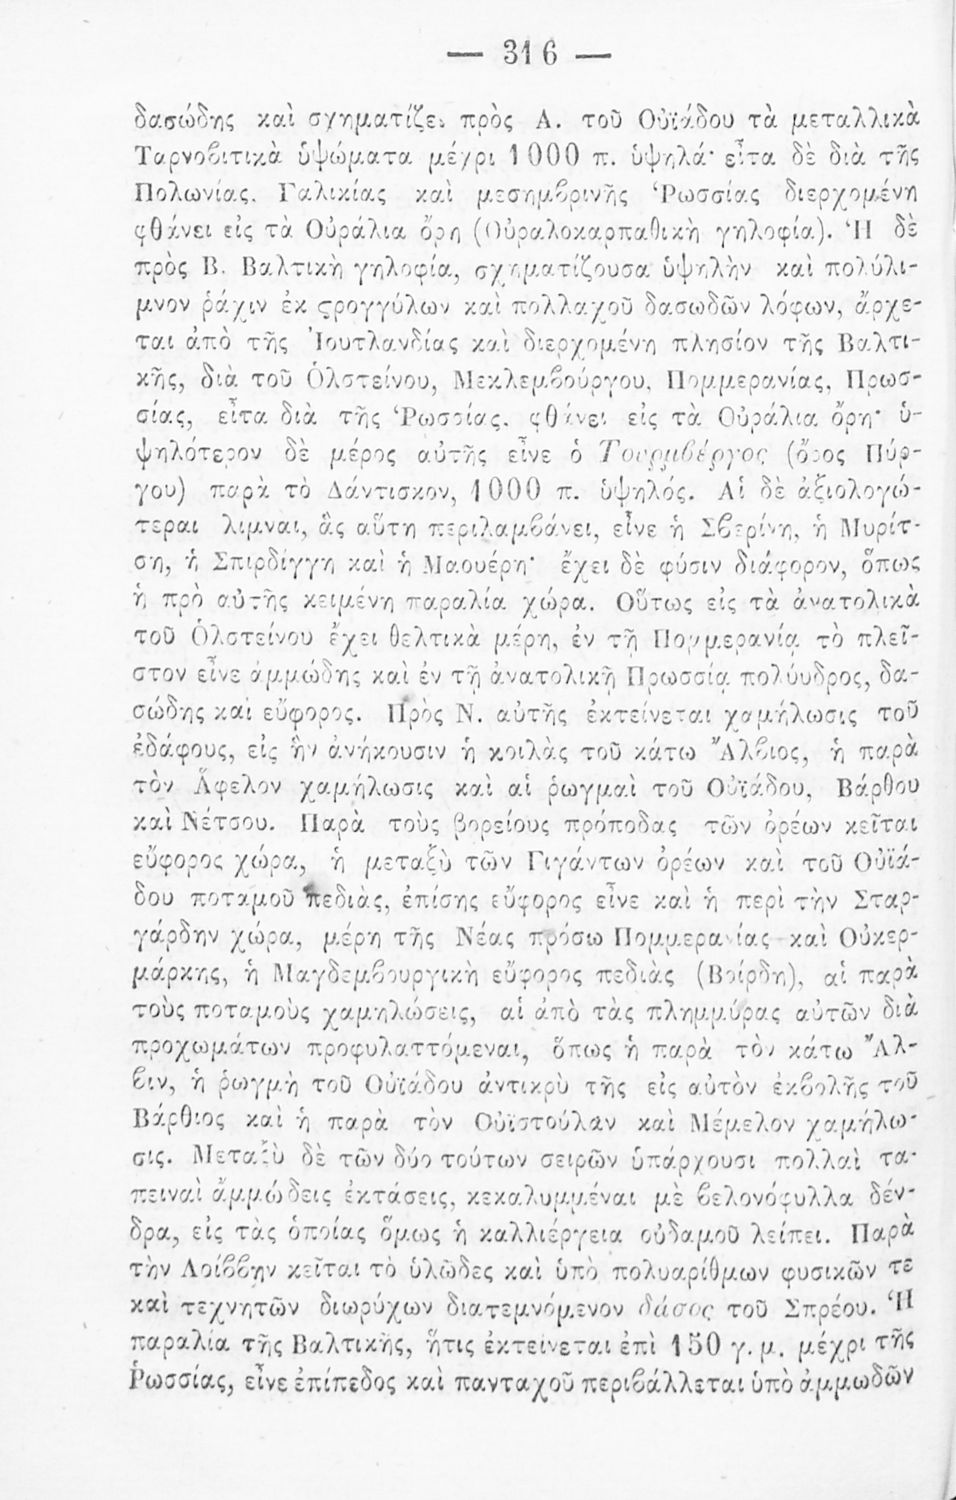 — 316 —
δασώδης καὶ σχηματίζει πρὸς Α. τοῦ Οὐϊάδου τὰ μεταλλικὰ
Ταρνοβιτικὰ ὑψώματα μέχρι 1000 π. ὑψηλά· εἶτα δὲ διὰ τῆς
Πολωνίας, Γαλικίας καὶ μεσημβρινῆς Ῥωσσίας διερχομένη
φθάνει εἰς τὰ Οὐράλια ὄρη (Οὐραλοκαρπαθικὴ γηλοφία). Ἡ δὲ
πρὸς Β. Βαλτικὴ γηλοφία, σχηματίζουσα ὑψηλὴν καὶ πολύλι-
μνον ῥάχιν ἐκ ϛρογγύλων καὶ πολλαχοῦ δασωδῶν λόφων, ἄρχε-
ται ἀπὸ τῆς Ἰουτλανδίας καὶ διερχομένη πλησίον τῆς Βαλτι-
κῆς, διὰ τοῦ Ὁλστείνου, Μεκλεμβούργου, Πομμερανίας, Πρωσ-
σίας, εἶτα διὰ τῆς Ῥωσσίας, φθάνει εἰς τὰ Οὐράλια ὄρη· ὑ-
ψηλότερον δὲ μέρος αὐτῆς εἶνε ὁ Τουρμβέργος (ὄρος Πύρ-
γου) παρὰ τὸ Δάντισκον, 1000 π. ὑψηλός. Αἱ δὲ ἀξιολογώ-
τεραι λιμναι, ἃς αὕτη περιλαμβάνει, εἶνε ἡ Σβερίνη, ἡ Μυρίτ-
ση, ἡ Σπιρδίγγη καὶ ἡ Μαουέρη· ἔχει δὲ φύσιν διάφορον, ὅπως
ἡ πρὸ αὐτῆς κειμένη παραλία χώρα. Οὕτως εἰς τὰ ἀνατολικὰ
τοῦ Ὁλστείνου ἔχει θελτικὰ μέρη, ἐν τῇ Πομμερανίᾳ τὸ πλεῖ-
στον εἶνε ἀμμώδης καὶ ἐν τῇ ἀνατολικῇ Πρωσσίᾳ πολύυδρος, δα-
σώδης καὶ εὔφορος. Πρὸς Ν. αὐτῆς ἐκτείνεται χαμήλωσις τοῦ
ἐδάφους, εἰς ἣν ἀνήκουσιν ἡ κοιλὰς τοῦ κάτω Ἄλβιος, ἡ παρὰ
τὸν Ἄφελον χαμήλωσις καὶ αἱ ῥωγμαὶ τοῦ Οὐϊάδου, Βάρθου
καὶ Νέτσου. Παρὰ τοὺς βορείους πρόποδας τῶν ὀρέων κεῖται
εὔφορος χώρα, ἡ μεταξὺ τῶν Γιγάντων ὀρέων καὶ τοῦ Οὐϊά-
δου ποταμοῦ πεδιὰς, ἐπίσης εὔφορος εἶνε καὶ ἡ περὶ τὴν Σταρ-
γάρδην χώρα, μέρη τῆς Νέας πρόσω Πομμερανίας καὶ Οὐκερ-
μάρκης, ἡ Μαγδεμβουργικὴ εὔφορος πεδιὰς (Βοίρδη), αἱ παρὰ
τοὺς ποταμοὺς χαμηλώσεις, αἱ ἀπὸ τὰς πλημμύρας αὐτῶν διὰ
προχωμάτων προφυλαττόμεναι, ὅπως ἡ παρὰ τὸν κάτω Ἄλ-
βιν, ἡ ῥωγμὴ τοῦ Οὐϊάδου ἀντικρὺ τῆς εἰς αὐτὸν ἐκβολῆς τοῦ
Βάρθιος καὶ ἡ παρὰ τὸν Οὐϊστούλαν καὶ Μέμελον χαμήλω-
σις. Μεταξὺ δὲ τῶν δύο τούτων σειρῶν ὑπάρχουσι πολλαὶ τα-
πειναὶ ἀμμώδεις ἐκτάσεις, κεκαλυμμέναι μὲ βελονόφυλλα δέν-
δρα, εἰς τὰς ὁποίας ὅμως ἡ καλλιέργεια οὐδαμοῦ λείπει. Παρὰ
τὴν Λοίββην κεῖται τὸ ὑλῶδες καὶ ὑπὸ πολυαρίθμων φυσικῶν τε
καὶ τεχνητῶν διωρύχων διατεμνόμενον δάσος τοῦ Σπρέου. Ἡ
παραλία τῆς Βαλτικῆς, ἥτις ἐκτείνεται ἐπὶ 150 γ. μ. μέχρι τῆς
Ῥωσσίας, εἶνε ἐπίπεδος καὶ πανταχοῦ περιβάλλεται ὑπὸ ἀμμωδῶν